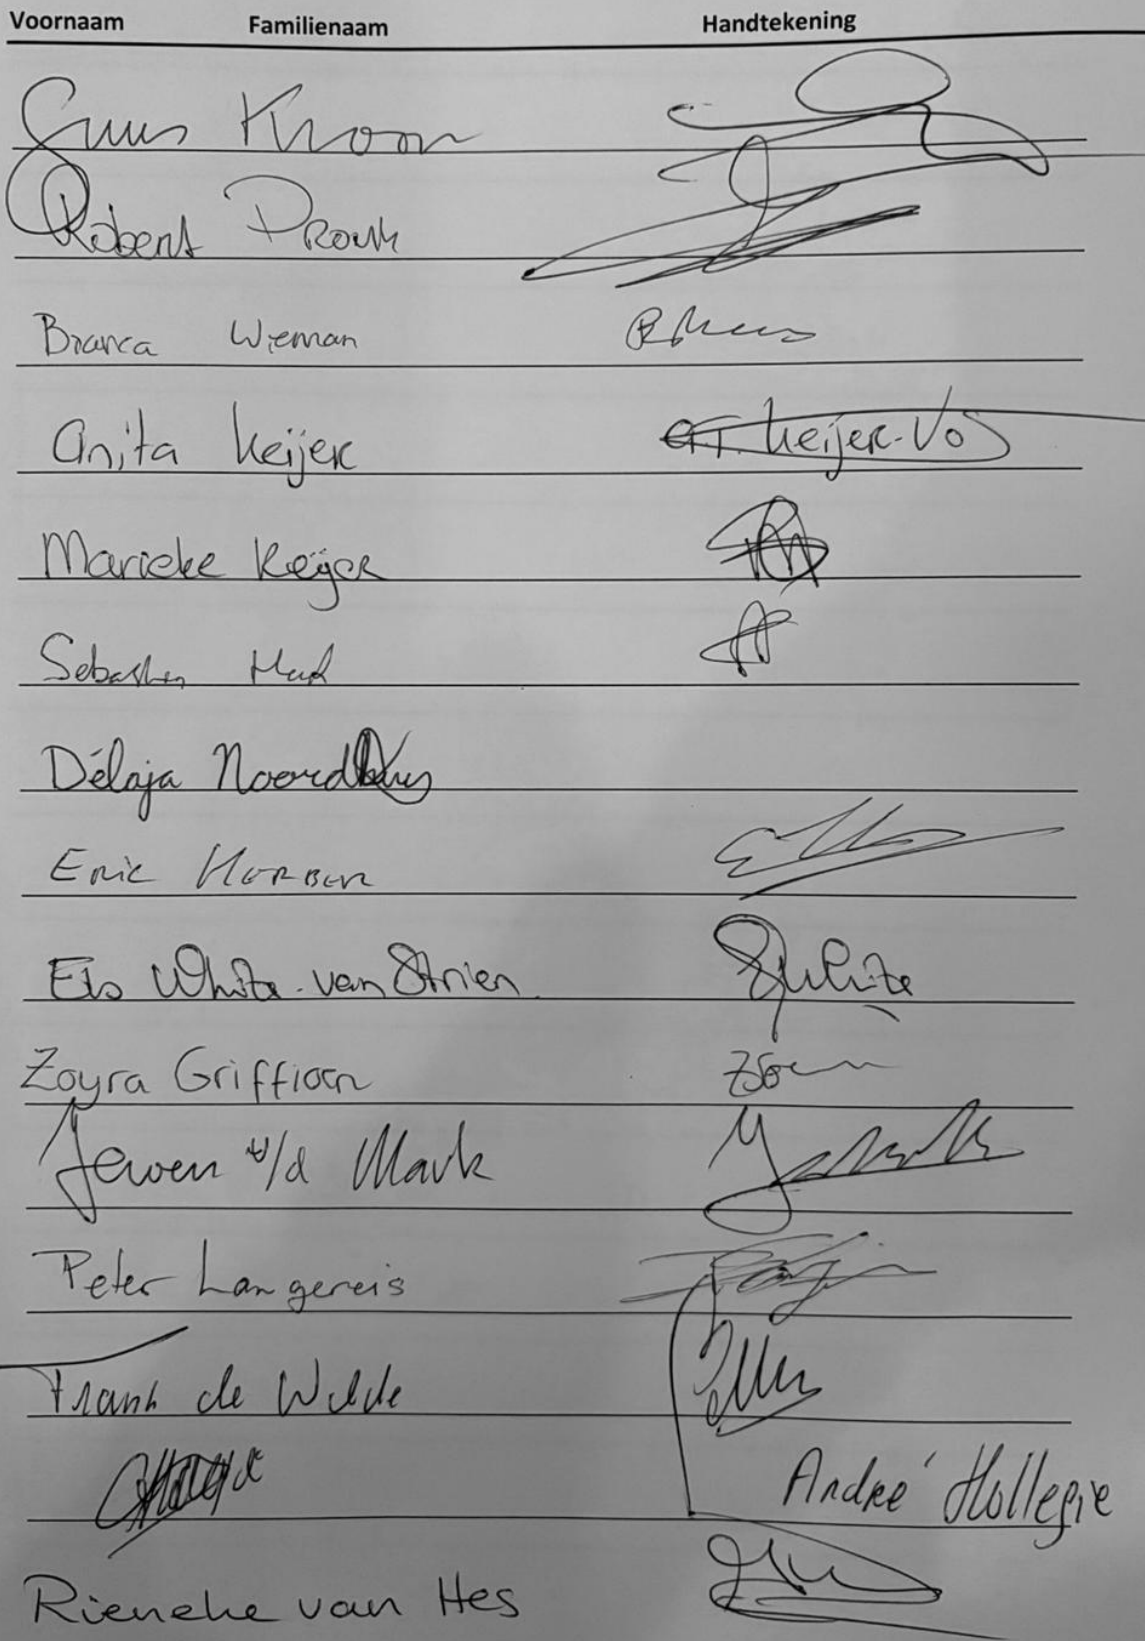 Voornaam Familienaam Handtekening
Guus Kroon
Robert Pronk
Bianca Wieman
Anita Keijer A.T. Keijer-Vos
Marieke Keijer
Sebastian
Délaja
Eric
Els White-van Strien White
Zoyra Griffioen
Jeroen v/d Mark
Peter Langereis
Frank de Wilde
André Hollegie
Rieneke van Hes